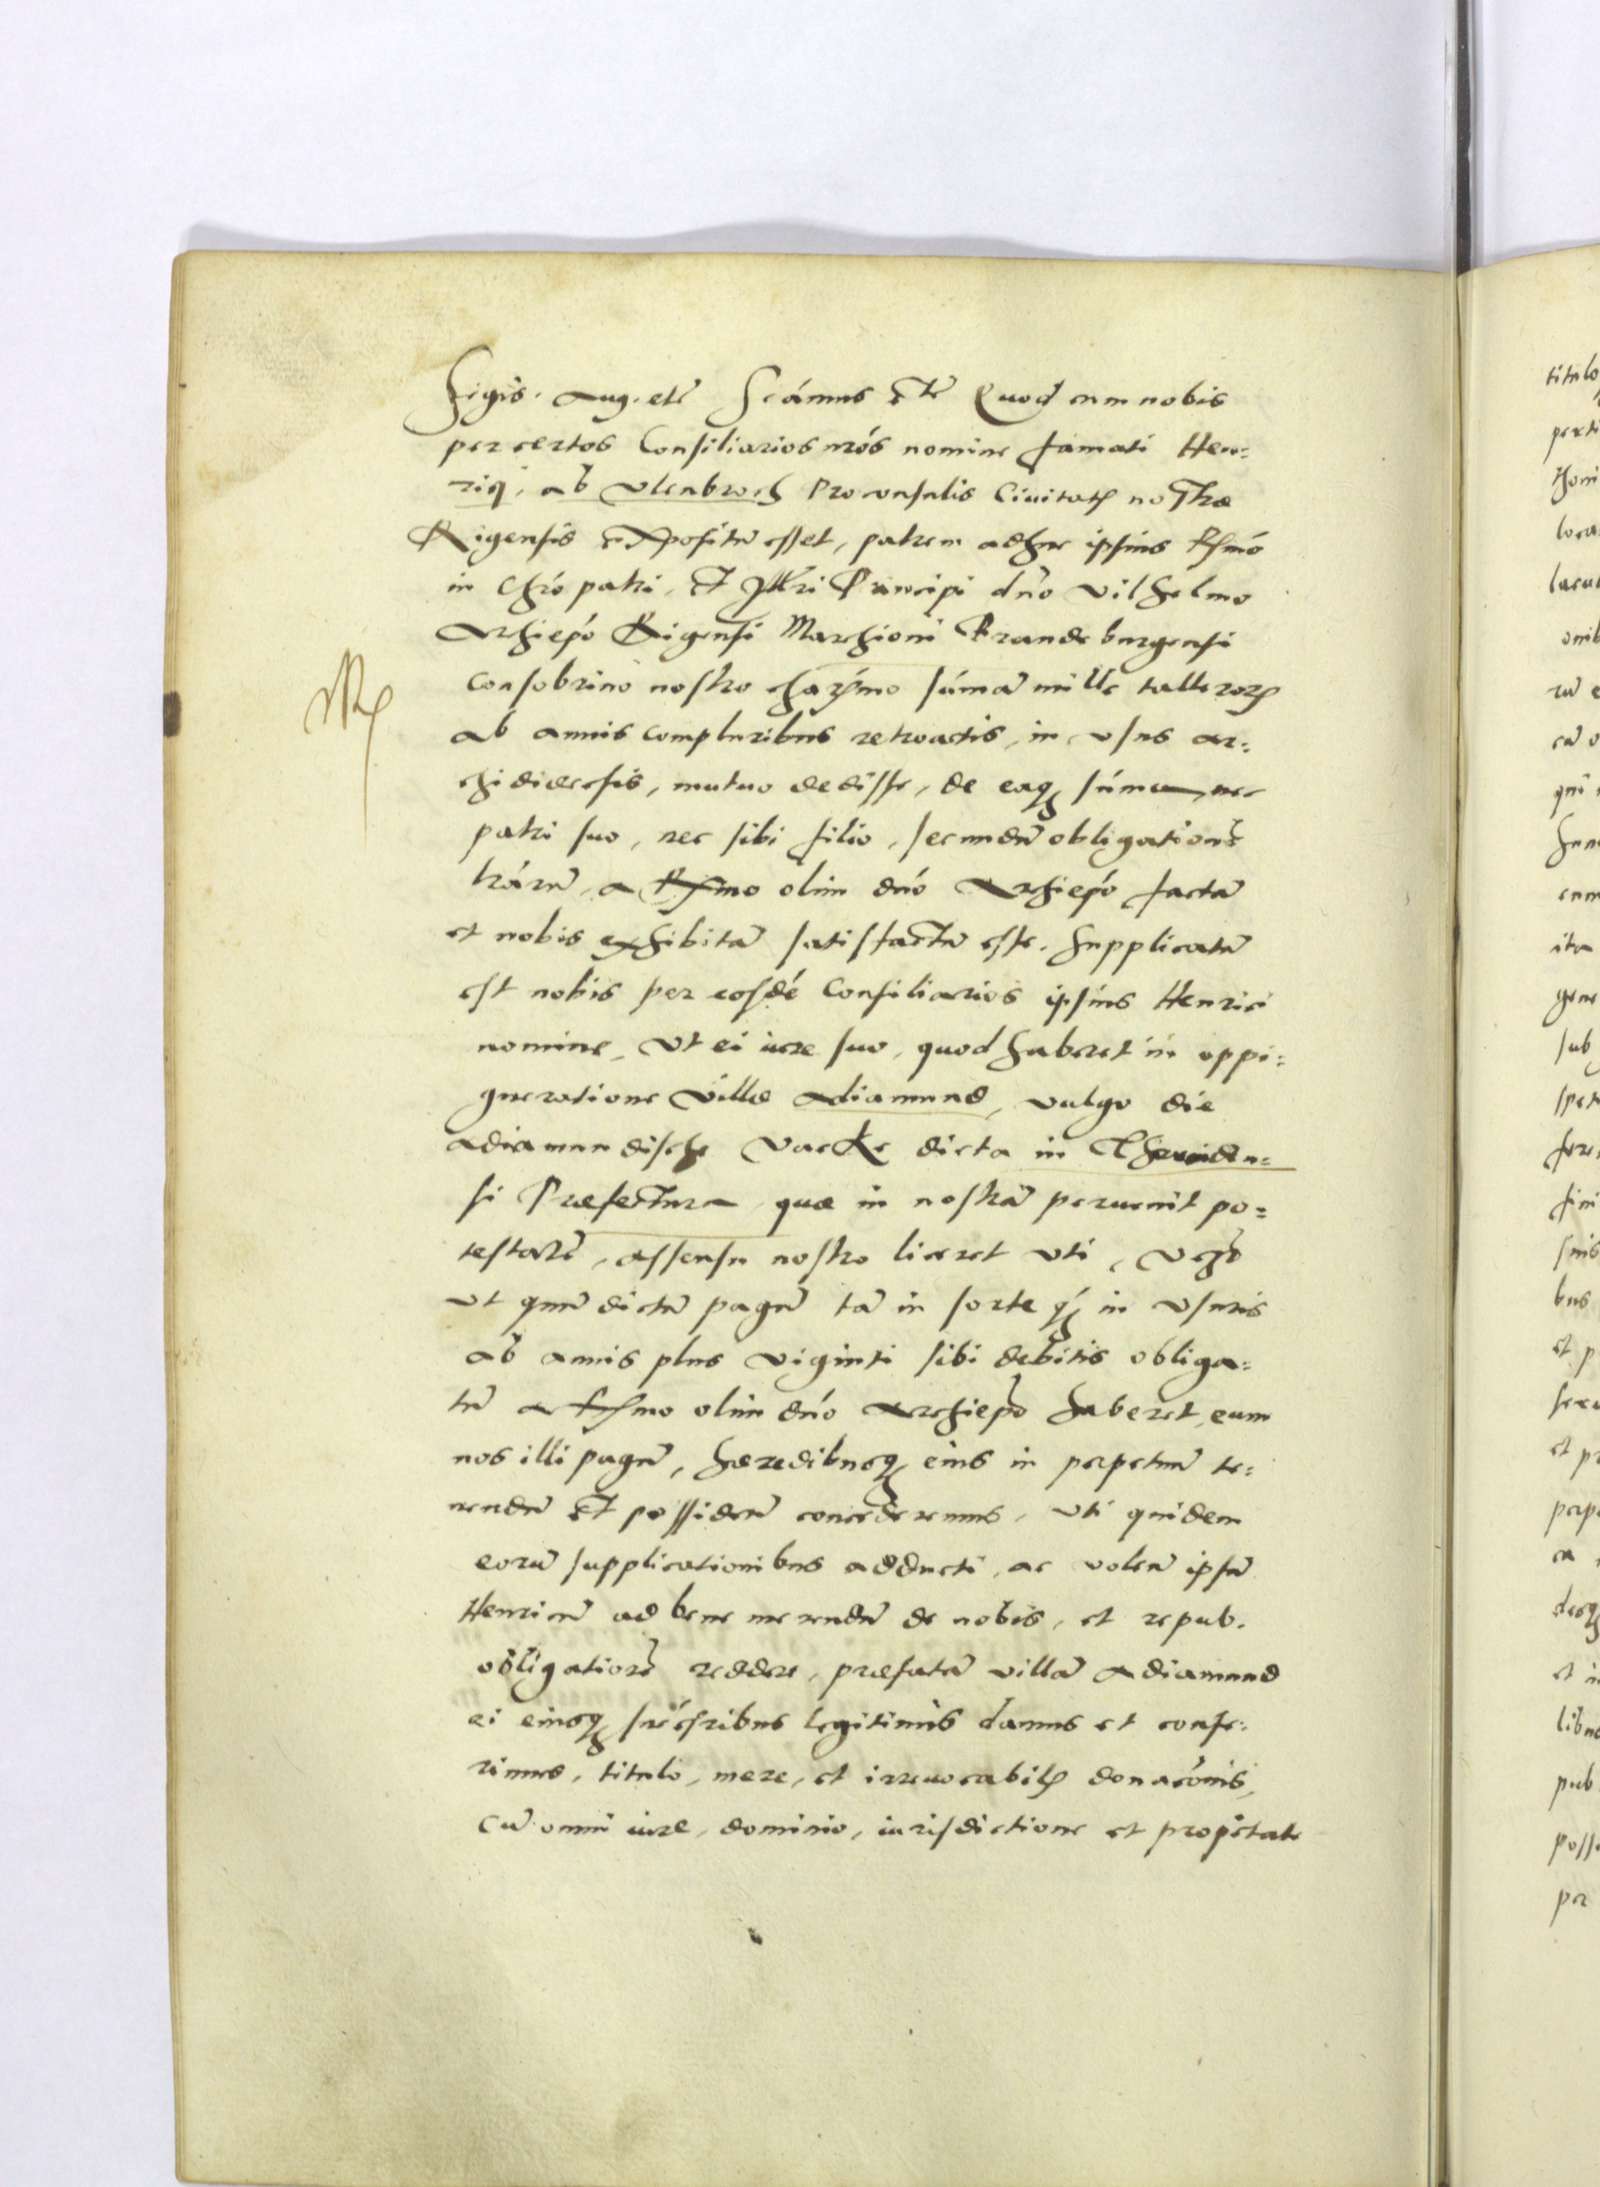 Sigis. Aug. etc̃ Scámus etc̃ Quod cum nobis
per certos Consiliarios nr̃os nomine famati Hen=
riq̨. ab Vlenbroch Proconsulis Ciuitatꝭ nostræ
Rigensis expositũ esset, patrem adhuc ipsius Rs̃mo
in Chr̃o patri, et Illri Principi dño Vilhelmo
Archiepõ Rigensi Marchioni Brandeburgensi
Consobrino nostro charmo sũmã mille tallerorꝭ
ab annis compluribus retroactis, in vsus ar=
chidiœcesis, mutuo dedisse, de eaqꝫ sũma nec
patri suo, nec sibi filio, secundũ obligationẽ
rárũ, a Rs̃mo olim dño Archiepõ factã
et nobis exhibitã satisfactũ esse. Supplicatũ
est nobis per eosdẽ Consiliarios ipsius Henrici
nomine, Vt ei iure suo, quod haberet in oppi=
gneratione villæ Adiamund, vulgo die
Adiamundische Vacke dicta in
si Præfectura, quæ in nostrã peruenit po=
testatẽ, assensu nostro liceret vti,
vt quũ dictũ pagũ tã in sorte qꝫ in vsuris
ab annis plus viginti sibi debitis obliga=
tũ a Rs̃mo olim dño Archiepõ haberet, eum
nos illi pagũ, hæredibusqꝫ eius in perpetuũ te=
nendũ et possidendũ concederemus, Vti quidem
eorũ supplicationibus adducti, ac volen̄ ipsũ
Henricũ ad bene merendũ de nobis, et repub.
obligatiorẽ reddere, præfatã villã Adiamund
ei eiusqꝫ sućcs̃ribus legitimis damus et confe=
rimus, titulo, mere, et irreuocabilꝭ donacõnis,
Cũ omni iure, dominio, iurisdictione et propietate